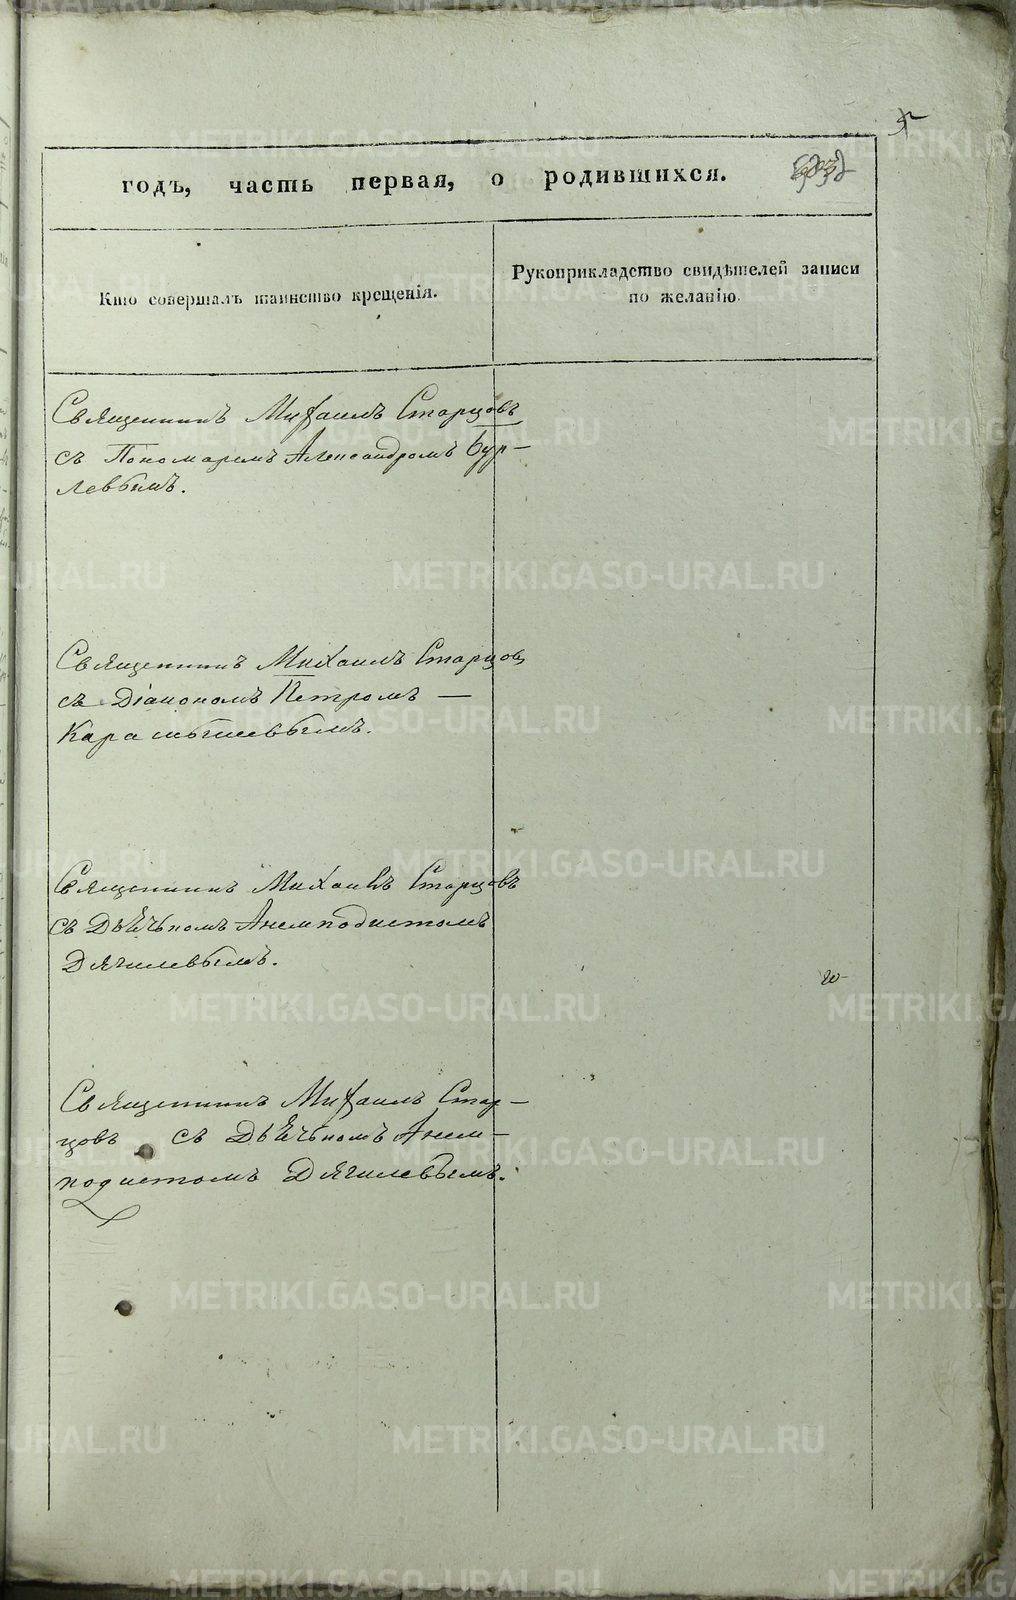 годъ, часть первая, о родившихся.
Кто совершалъ таинство крещенія.
Рукоприкладство свидѣтелей записи
по желанію.
Священникъ Михаилъ Старцовъ
съ Пономаремъ Александромъ Бур-
левымъ.
Священникъ Михаилъ Старцовъ
съ Діакономъ Петромъ —
Карамышевымъ.
Священникъ Михаилъ Старцовъ
съ Дьячькомъ Анемподистомъ
Дягилевымъ.
Священникъ Михаилъ Стар-
цовъ съ Дьячькомъ Анем-
подистомъ Дягилевымъ.
METRIKI.GASO-URAL.RU